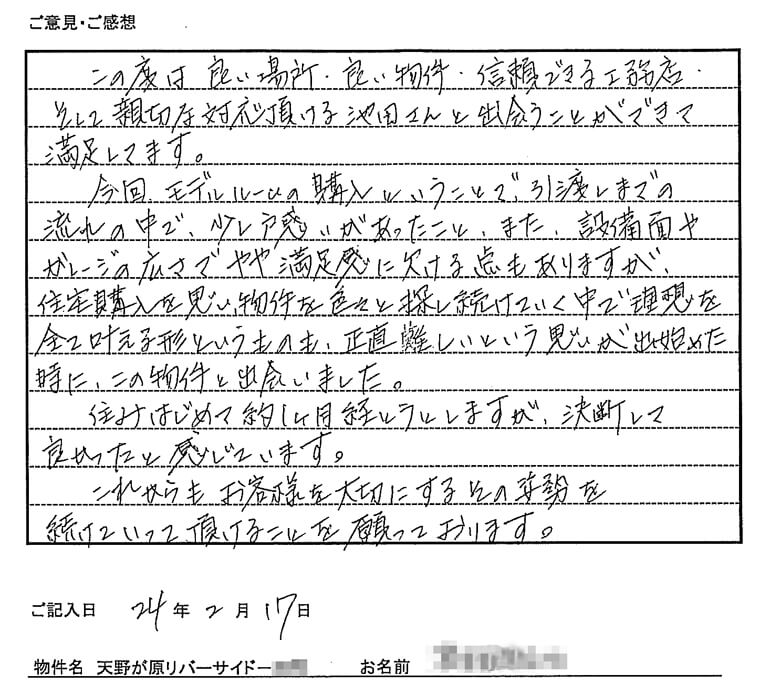 ご意見・ご感想
この度は良い場所・良い物件・信頼できる工務店・
そして親切な対応頂ける池田さんと出会うことができて
満足してます。
今回、モデルルームの購入ということで、引渡しまでの
流れの中で、少し戸惑いがあったこと、また、設備面や
ガレージの広さでやや満足感に欠ける点もありますが、
住宅購入を思い、物件を色々と探し続けていく中で理想を
全て叶える形というものも、正直難しいという思いが出始めた
時に、この物件と出会いました。
住みはじめて約1ヶ月経とうとしますが、決断して
良かったと感じています。
これからもお客様を大切にするその姿勢を
続けていって頂けることを願っております。
ご記入日 24年2月17日
物件名 天野が原リバーサイドー お名前